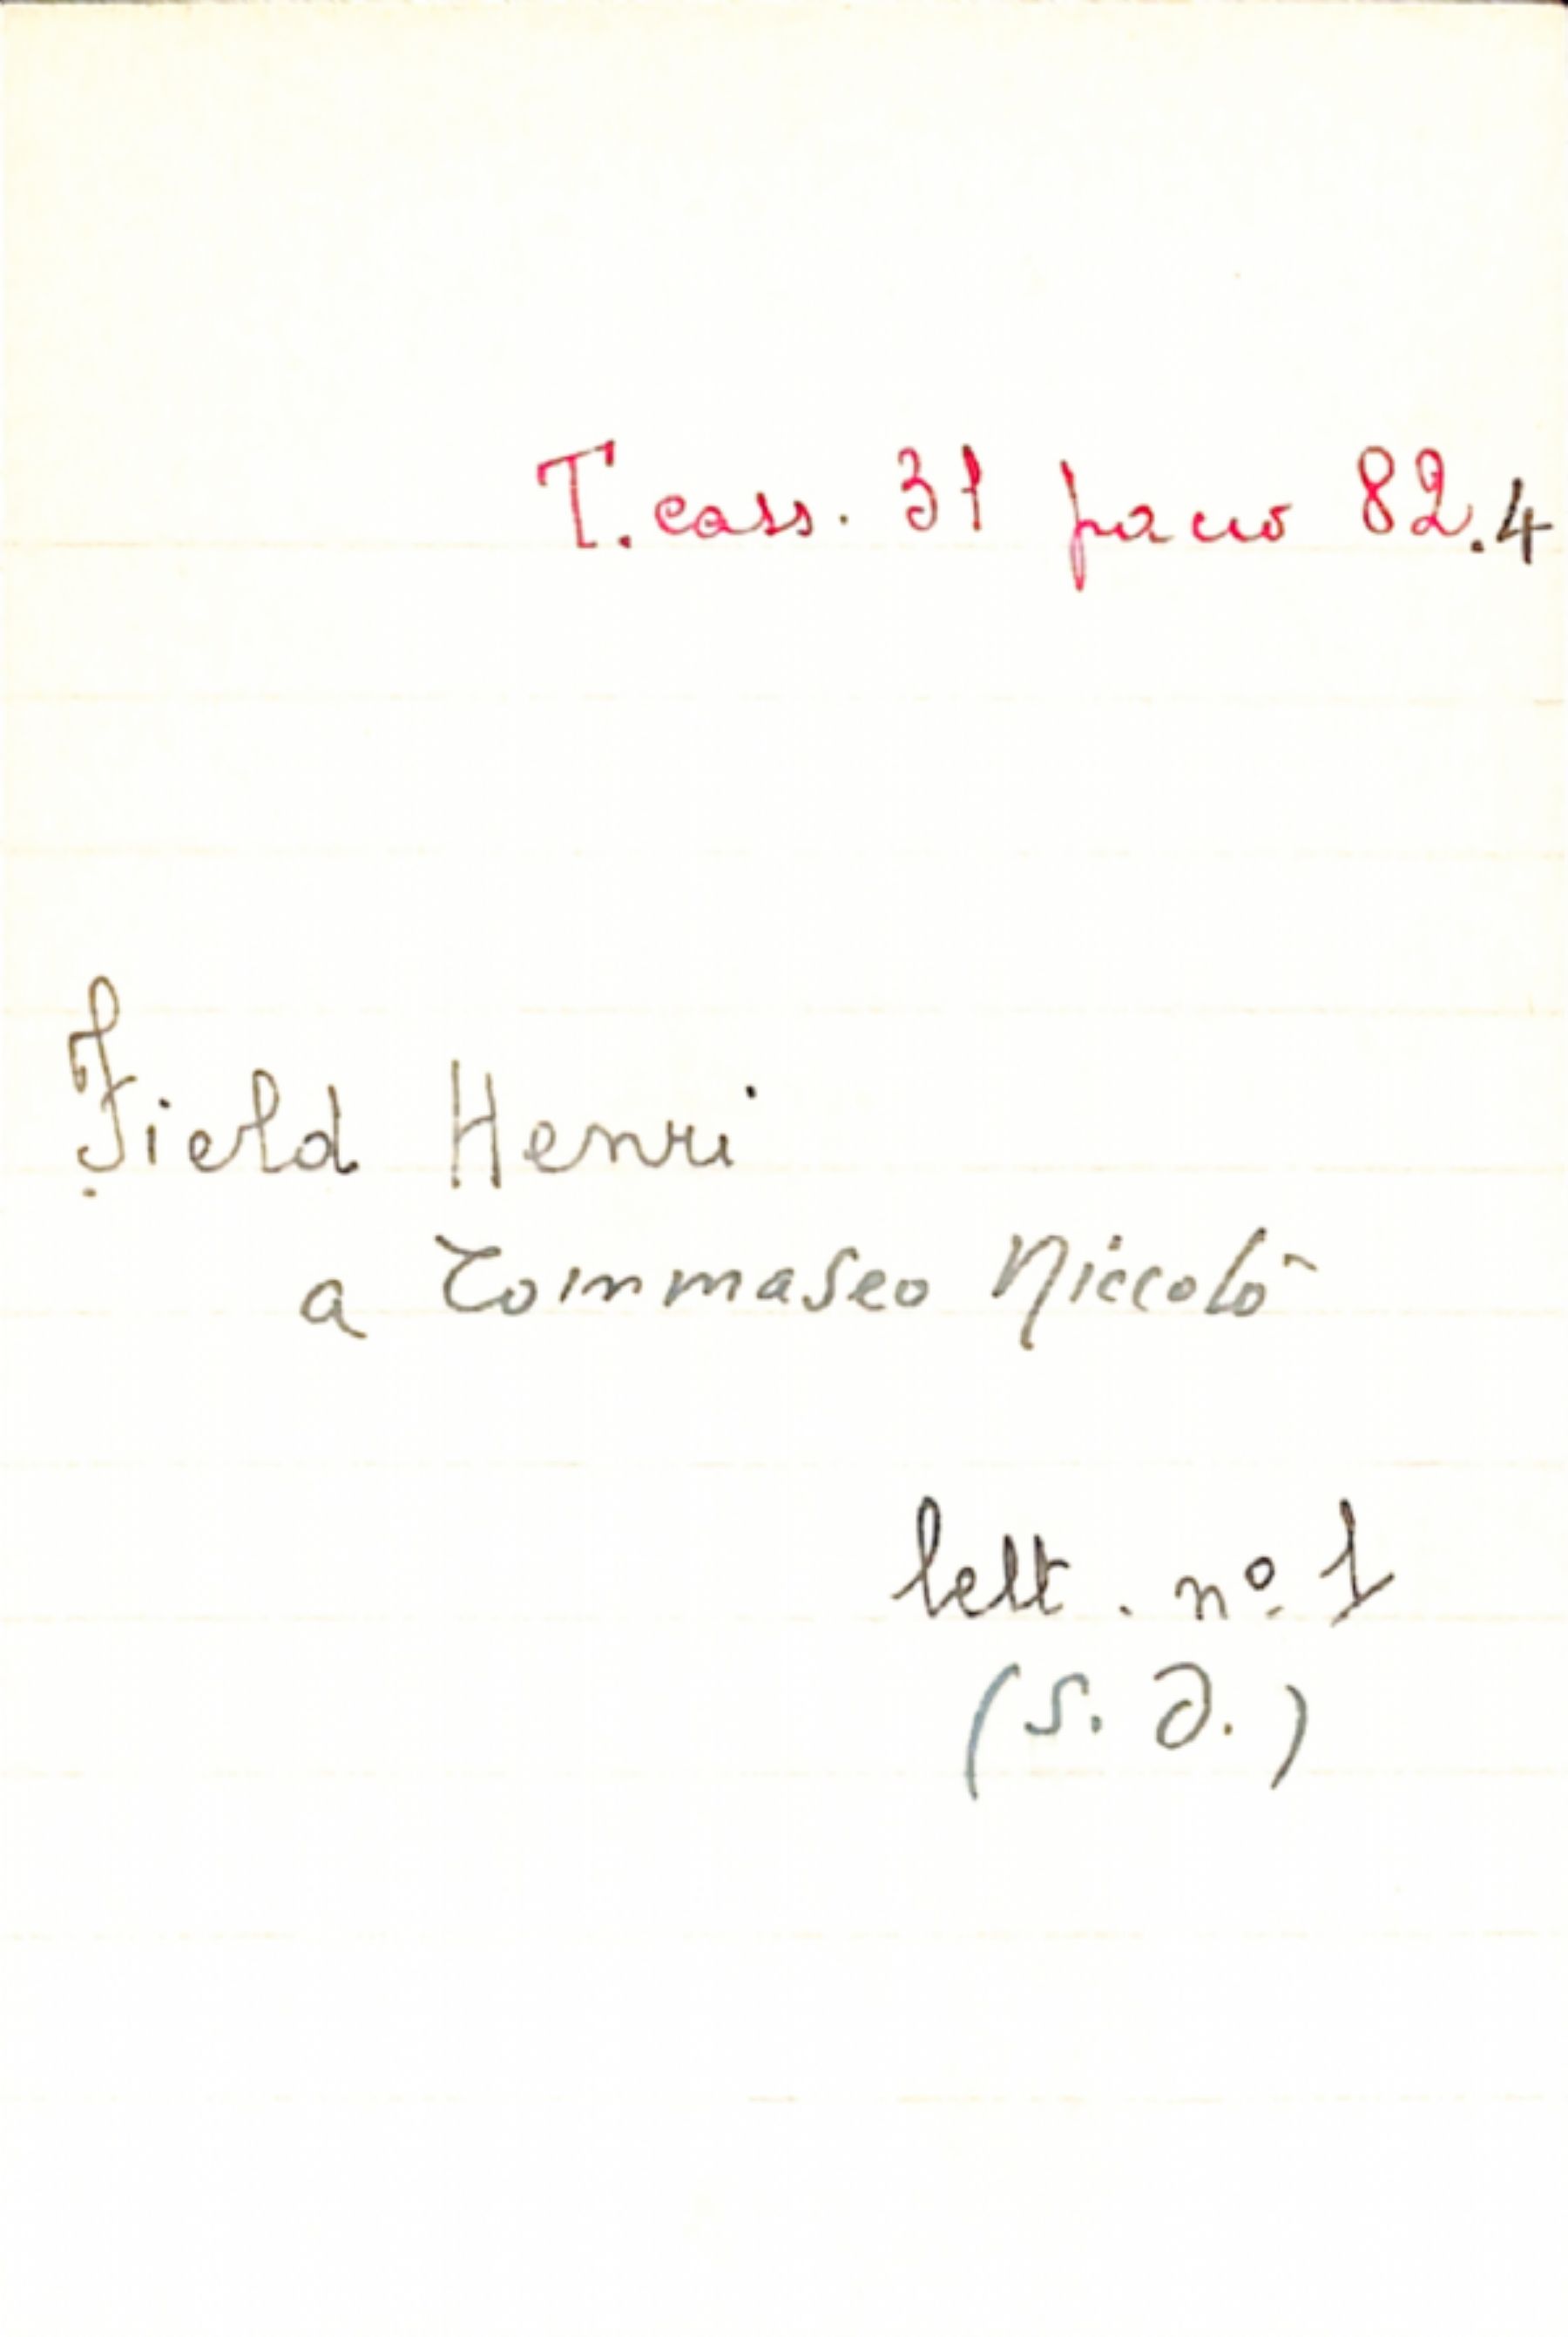 T. cass. 31 pacco 82.4
Field Henri
a Tommaseo Niccolò
lett. nº 1
(s. d.)